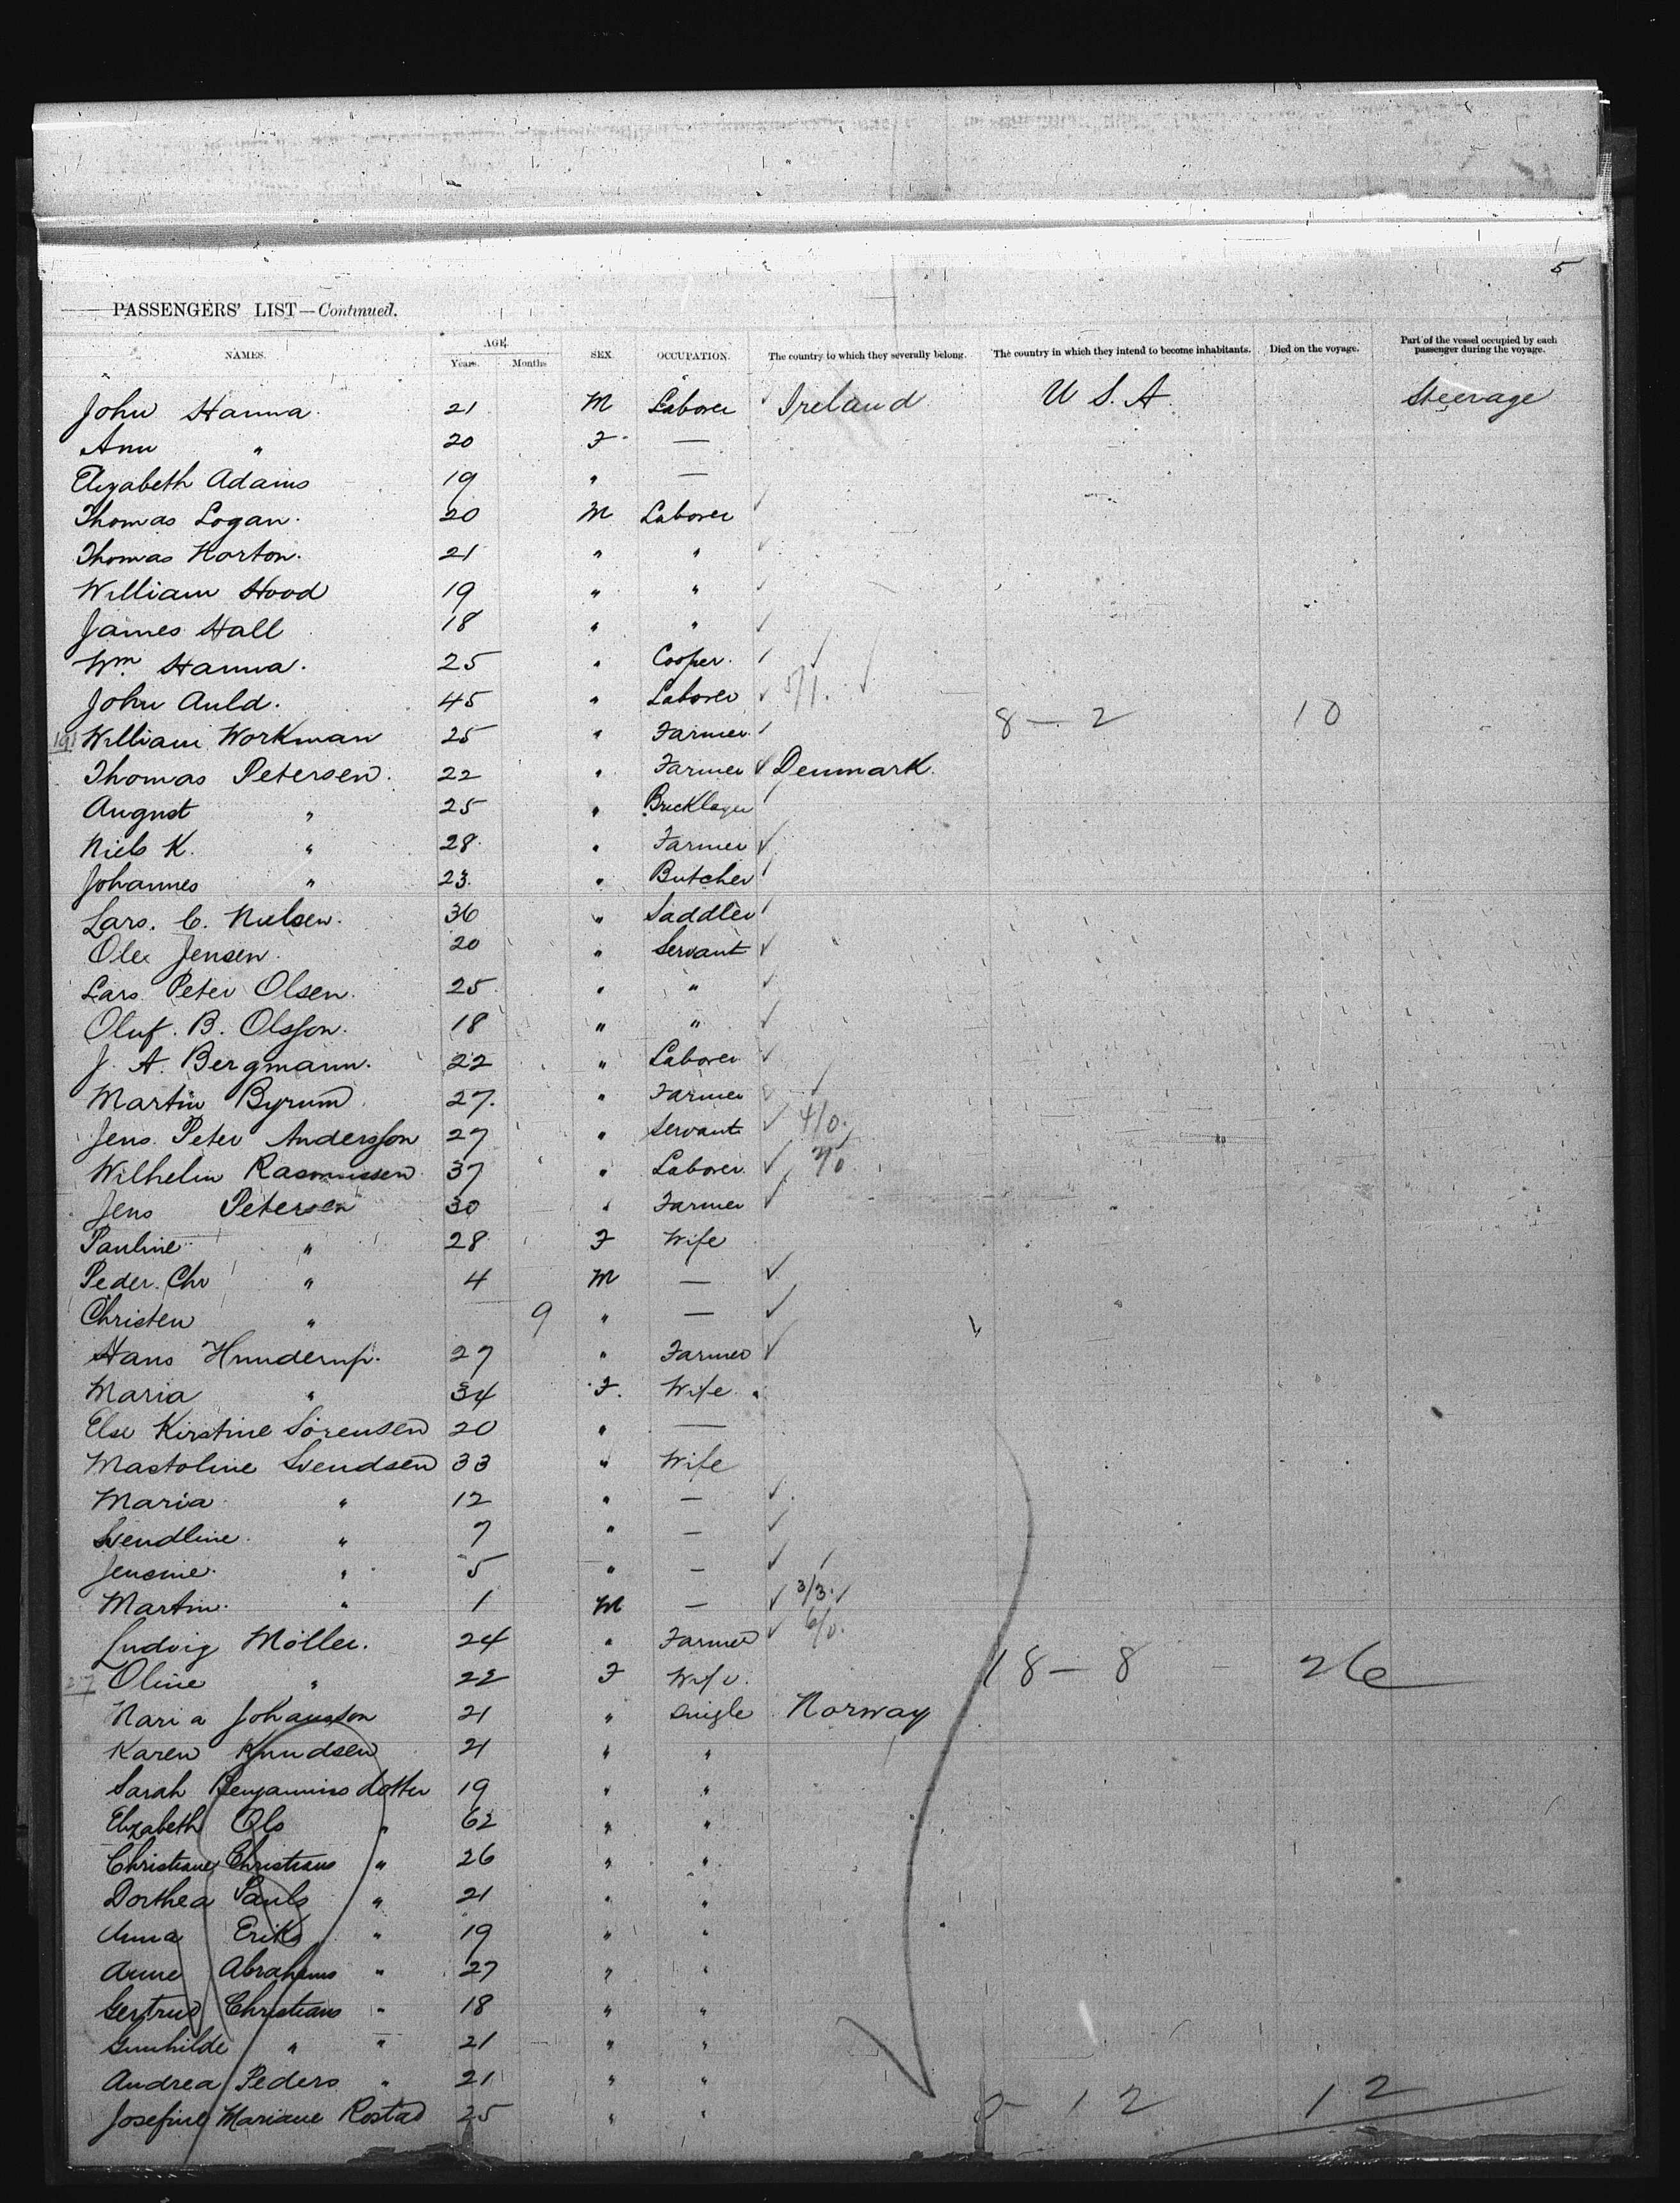 5
PASSENGERS' LIST—Continued.
NAMES. AGE. Years. Months SEX. OCCUPATION. The country to which they severally belong. The country in which they intend to become inhabitants. Died on the voyage. Part of the vessel occupied by each passenger during the voyage.
John Hanna. 21 M Laborer Ireland U S. A. Steerage
Ann " 20 F —
Elizabeth Adams 19 " —
Thomas Logan. 20 M Laborer
Thomas Horton. 21 " "
William Hood 19 " "
James Hall 18 " "
Wm. Hanna. 25 " Cooper.
John Auld. 45 " Laborer 5/1.
191 William Workman 25 " Farmer 8 — 2 10
Thomas Petersen. 22 " Farmer Denmark.
August " 25 " Bricklayer
Niels K. " 28 " Farmer
Johannes " 23. " Butcher
Lars. C. Nielsen. 36 " Saddler
Ole Jensen. 20 " Servant
Lars Peter Olsen. 25 " "
Oluf. B. Olsson. 18 " "
J. A. Bergmann. 22 " Laborer
Martin Byrum 27. " Farmer
Jens Peter Andersson 27 " Servant 4/0.
Wilhelm Rasmussen 37 " Laborer
Jens Petersen 30 " Farmer
Pauline " 28 F Wife
Peder. Chr " 4 M —
Christen " 9 " —
Hans Hunderup. 27 " Farmer
Maria " 34 F. Wife
Else Kirstine Sörensen 20 " —
Mastoline Svendsen 33 " Wife
Maria " 12 " —
Svendline " 7 " —
Jensine " 5 " —
Martin " 1 M — 3/3.
Ludvig Möller. 24 " Farmer 6/0.
27 Oline " 22 F Wife. 18 — 8 — 26
Maria Johansson 21 " Single Norway
Karen Knudsen 21 " "
Sarah Benjamins dotter 19 " "
Elizabeth Ols " 62 " "
Christiane Christians " 26 " "
Dorthea Pauls " 21 " "
Anna Eriks " 19 " "
Anne Abrahams " 27 " "
Gertrud Christians " 18 " "
Gunhilde " " 21 " "
Andrea Peders " 21 " "
Josefine Mariane Rostad 25 " " 0 - 12 12